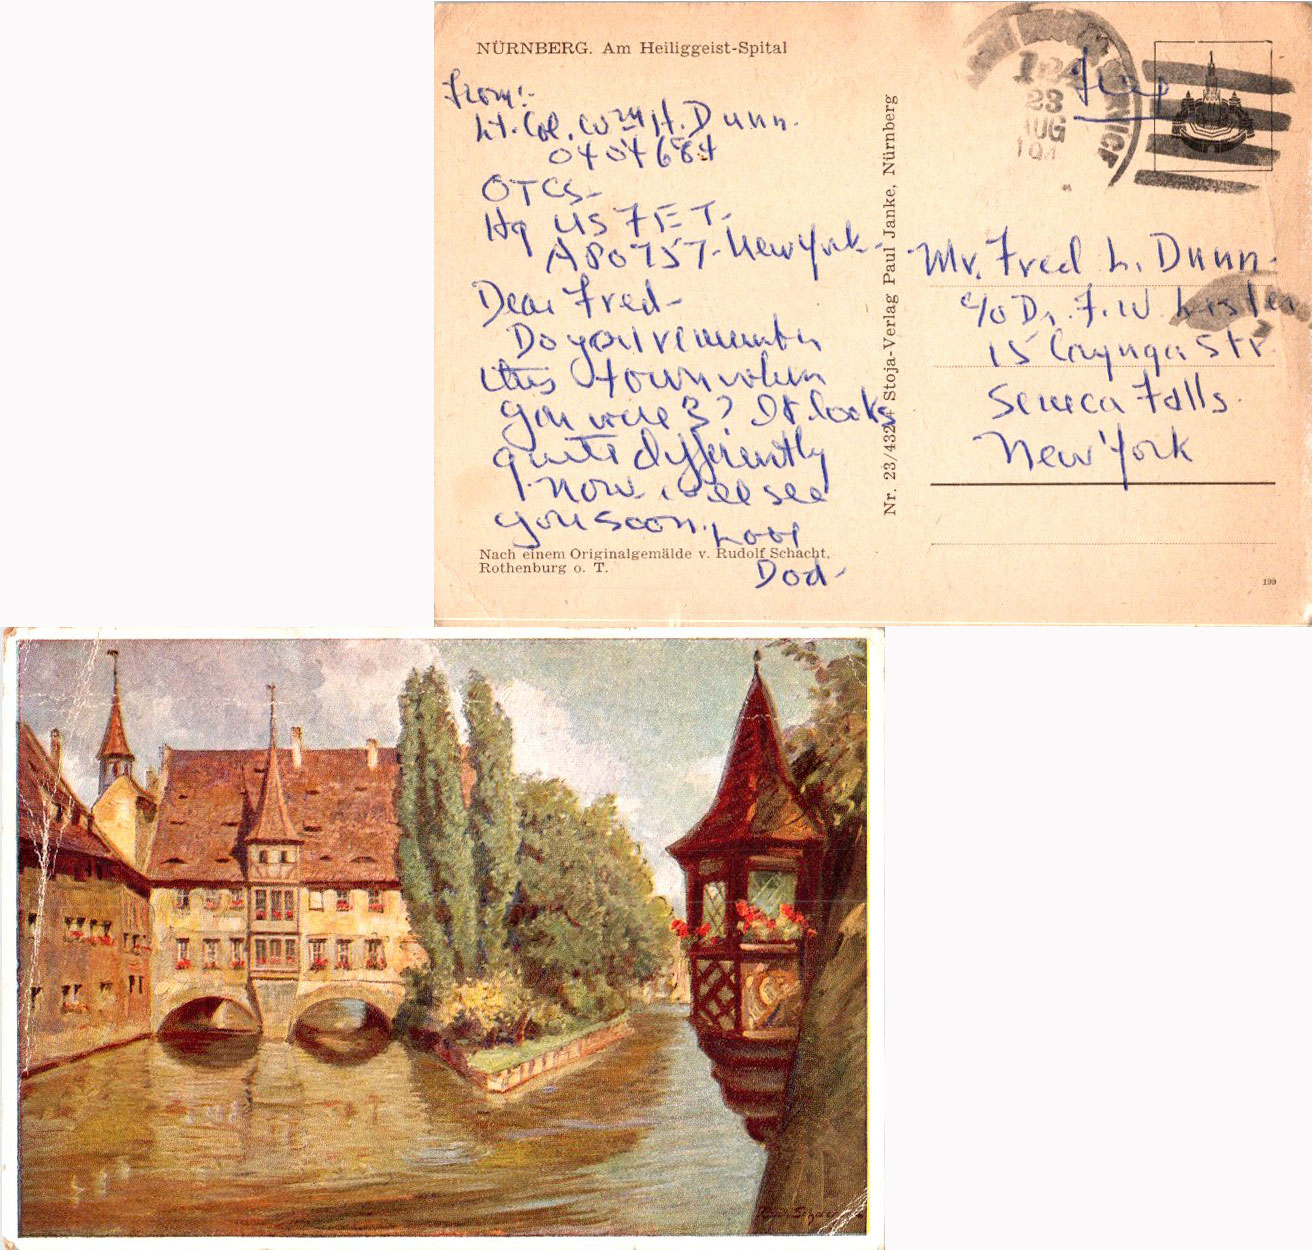 NÜRNBERG. Am Heiliggeist-Spital
From:-
Lt. Col. Wm H. Dunn.
0404684
OTCS-
Hq USFET-
APO 757- New York-
Dear Fred-
Do you remember
this town when
you were 3? It looks
quite differently
now. will see
you soon.
Love
Dad-
Nach einem Originalgemälde v. Rudolf Schacht,
Rothenburg o. T.
Nr. 23/432 Stoja-Verlag Paul Janke, Nürnberg
Free
23
AUG
194
Mr. Fred L. Dunn-
c/o Dr. F. W. Lester
15 Cayuga Str.
Seneca Falls.
New York
199